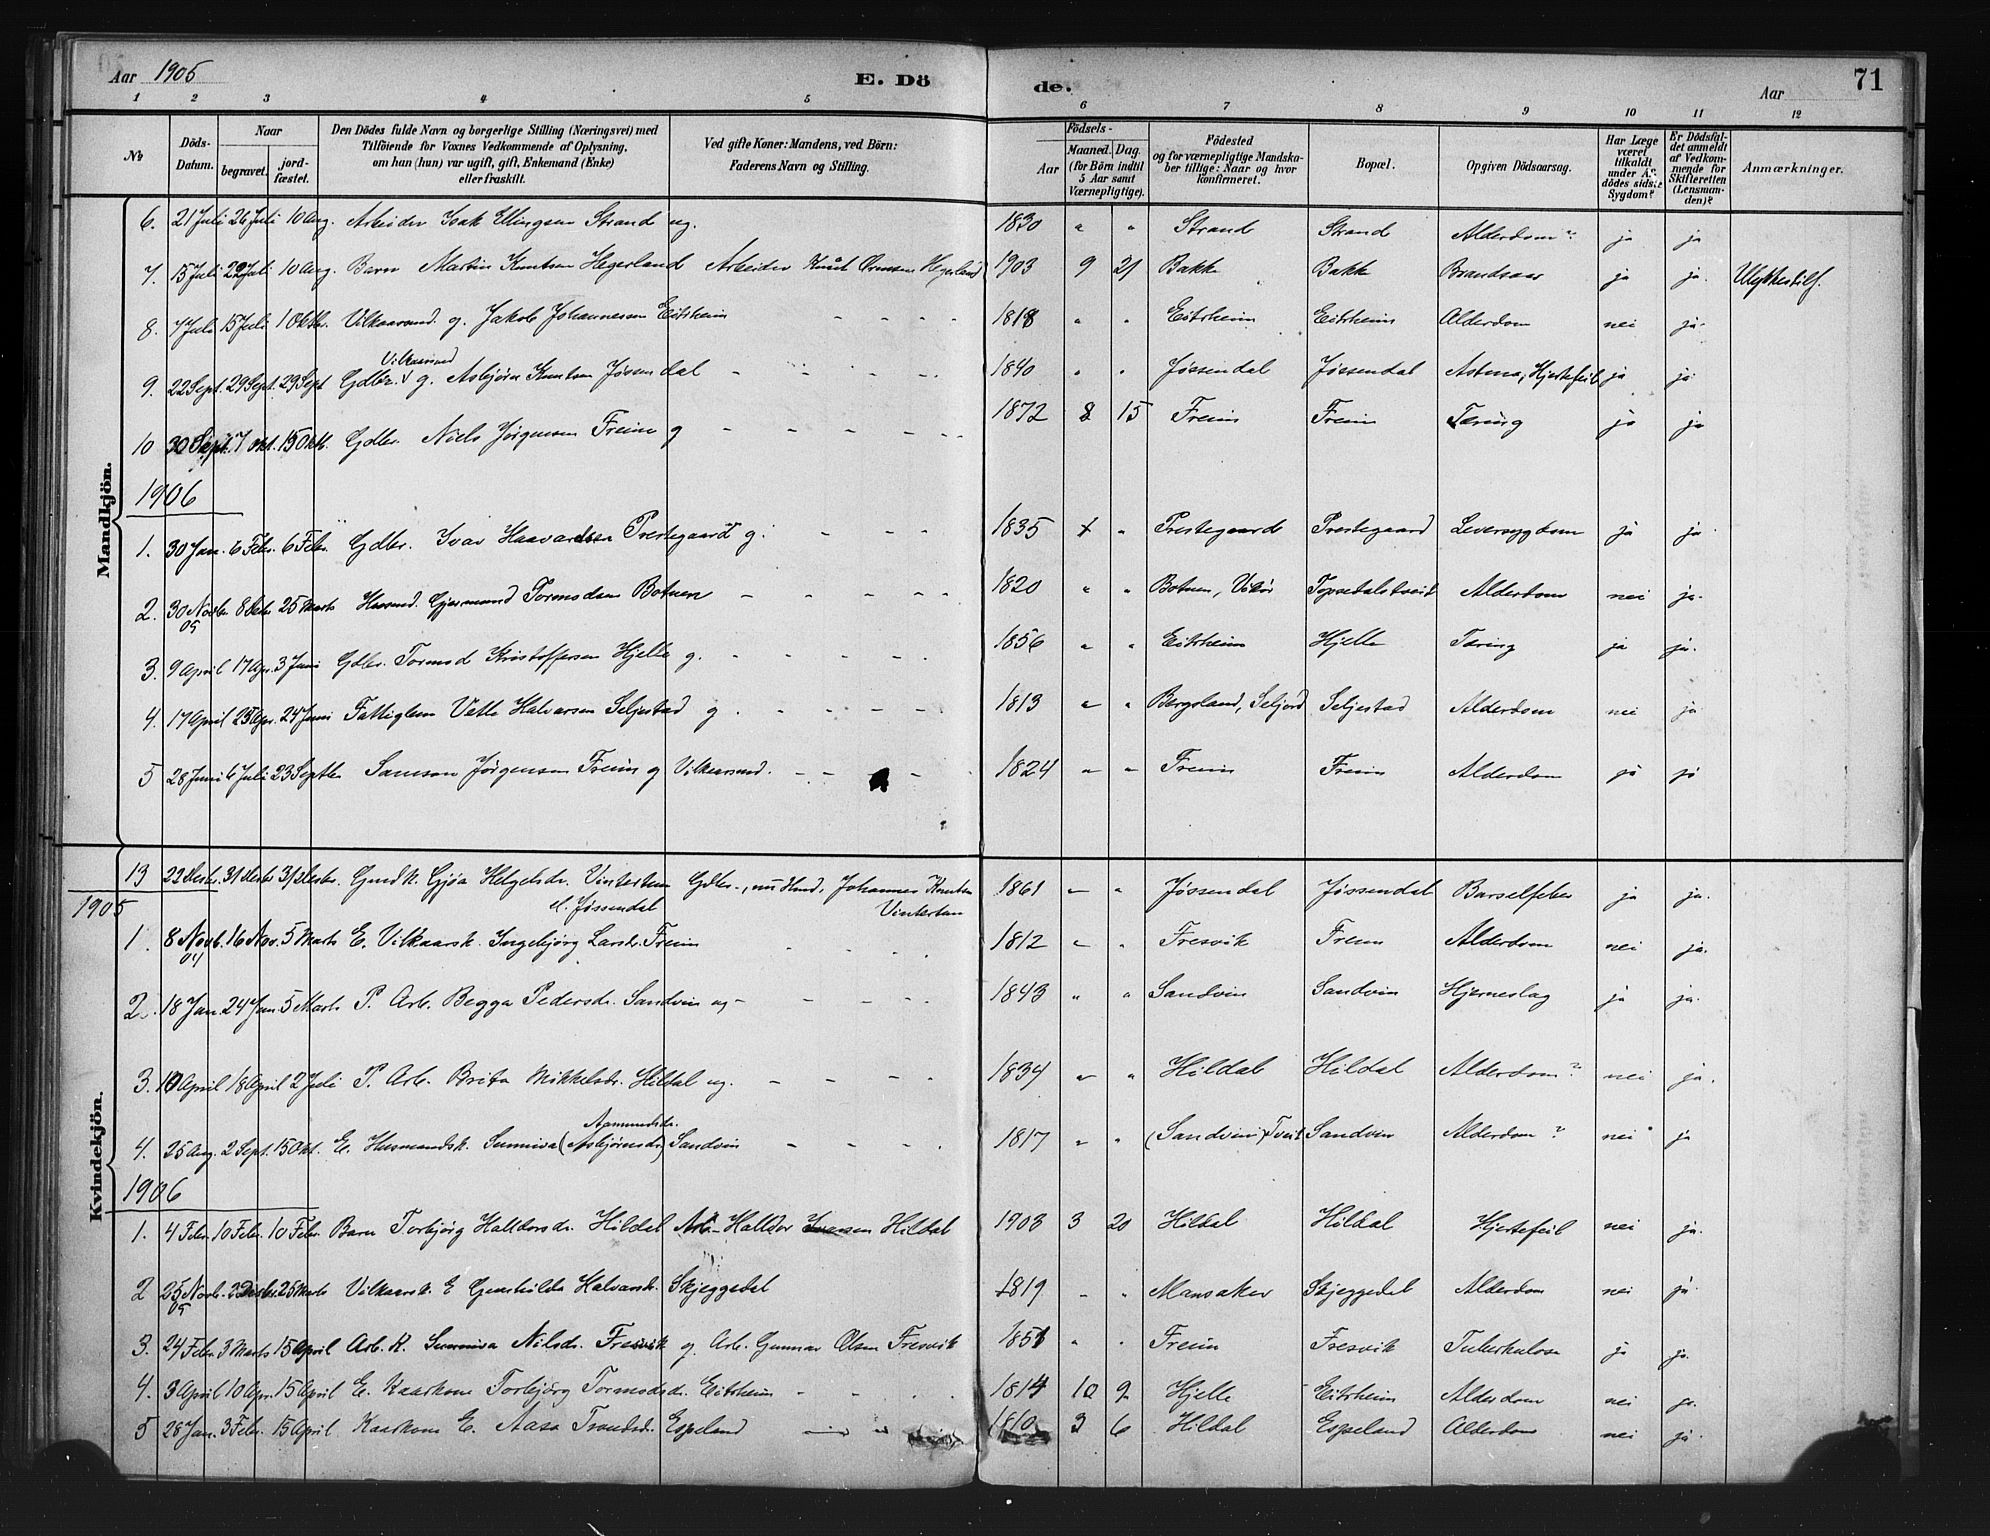 Aar 1905 E. Dö de. Aar 71
1 2 3 4 5 6 7 8 9 10 11 12
№ Döds-Datum. Naar begravet. jordfæstet. Den Dödes fulde Navn og borgerlige Stilling (Næringsvei) med Tilföiende for Voxnes Vedkommende af Oplysning, om han (hun) var ugift, gift, Enkemand (Enke) eller fraskilt. Ved gifte Koner: Mandens, ved Börn: Faderens Navn og Stilling. Födsels- Aar Maaned. Dag. (for Börn indtil 5 Aar samt Værnepligtige). Födested og for værnepligtige Mandskaber tillige: Naar og hvor konfirmeret. Bopæl. Opgiven Dödsaarsag. Har Læge været tilkaldt under d. dödes sidste Sygdom? Er Dödsfaldet anmeldt af Vedkommende for Skifteretten (Lensmanden)? Anmærkninger.
Mandkjön.
6. 21 Juli 26 Juli 10 Aug. Arbeider Isak Ellingsen Strand ug. 1830 " " Strand Strand Alderdom? ja ja
7. 15 Juli 22 Juli 10 Aug. Barn Martin Knutsen Hegerland Arbeider Knut Hegerland 1903 9 21 Bakke Bakke Brandsaar ja ja. Ulykkestilf.
8. 7 Juli 15 Juli 1 Oktbr. Vilkaarsmd. g. Jakob Johannessen Eitrheim - - - - 1818 " " Eitrheim Eitrheim Alderdom nei ja.
Vilkaarsmd
9. 22 Sept. 29 Sept. 29 Sept Gdbr. g. Asbjörn Knutsen Jøssendal - - - - - 1840 " " Jøssendal Jøssendal Astma, Hjertefeil ja ja
10 30 Sept. 7 Okt. 15 Oktb. Gdbr. Niels Jørgensen Freim g - - - - - 1872 8 15 Freim Freim Tæring ja ja
1906
1. 30 Jan. 6 Febr. 6 Febr. Gdbr. Ivar Haavardsen Prestegaard g. - - - 1835 " Prestegaard Prestegaard Leversygdom ja ja
2. 30 Novbr. 05 8 25 Marts Husmd. Gjermund Tormodsen Botnen - - - - - 1820 " " Botnen, Vikør Alderdom nei ja.
3. 9 April 17 Apr. 3 Juni Gdbr. Tormod Kristoffersen Hjelle g. - - - - - 1856 " " Eitrheim Hjelle Tæring ja ja.
4. 17 April 25 Apr. 24 Juni Fattiglem Vetle Halvorsen Seljestad g. - - - - - 1813 " " Bergsland, Seljord Seljestad Alderdom nei ja
5 28 Juni 6 Juli 23 Septbr Samson Jørgensen Freim g Vilkaarsmd. - - - 1824 " " Freim Freim Alderdom ja ja
Kvindekjön.
13 22 Desbr. 31 Desbr 31 Desbr. Gmdk. Gjøa Helgesdr. Vintertun Gdbr., nu Hmd. Johannes Knutsen 1861 " " Jøssendal Jøssendal Barselfeber ja ja.
1905 Jøssendal Vintertun
1. 8 Novb. 04 16 Nov. 5 Marts E. Vilkaarsk. Ingebjörg Larsdr. Freim - - - . 1812 " " Fresvik Freim Alderdom nei ja.
2. 18 Jan. 24 Jan. 5 Marts P. Arb. Begga Pedersdr. Sandvin ug - - - - - 1843 " " Sandvin Sandvin Hjerneslag ja ja.
3. 10 April 18 April 2 Juli P. Arb. Brita Mikkelsdr. Hildal ug. - - - - 1834 " " Hildal Hildal Alderdom? nei ja.
Aamundsdr.
4. 25 Aug. 2 Sept. 15 Okt. E. Husmandsk. Sunniva (Asbjörnsdr) Sandvin - - - . 1817 " " (Sandvin) Tveit Sandvin Alderdom? nei ja
1906
1. 4 Febr. 10 Febr. 10 Febr. Barn Torbjørg Halldorsdr. Hildal Arb. Halldor Hildal 1903 3 20 Hildal Hildal Hjertefeil nei ja.
2 25 Novb. 05 2 Desbr. 25 Marts Vilkaarsk. E Gunhilda Halvorsdr. Skjeggedal 1819 - " Mansaker Skjeggedal Alderdom nei ja
3. 24 Febr 3 Marts 15 April Arb. K. Sunniva Nilsdr. Fresvik g. Arb. Gunnar Olsen Fresvik 1851 " " Freim Fresvik Tuberkulose ja ja.
4. 3 April 10 Apr. 15 April E. Kaarkone Torbjörg Tormodsdr. Eitrheim - - . . 1814 10 9 Hjelle Eitrheim Alderdom nei ja.
5 28 Jan. 3 Febr. 15 April Kaarkone E. Aasa Trondsdr. Espeland 1810 3 6 Hildal Espeland Alderdom nei ja